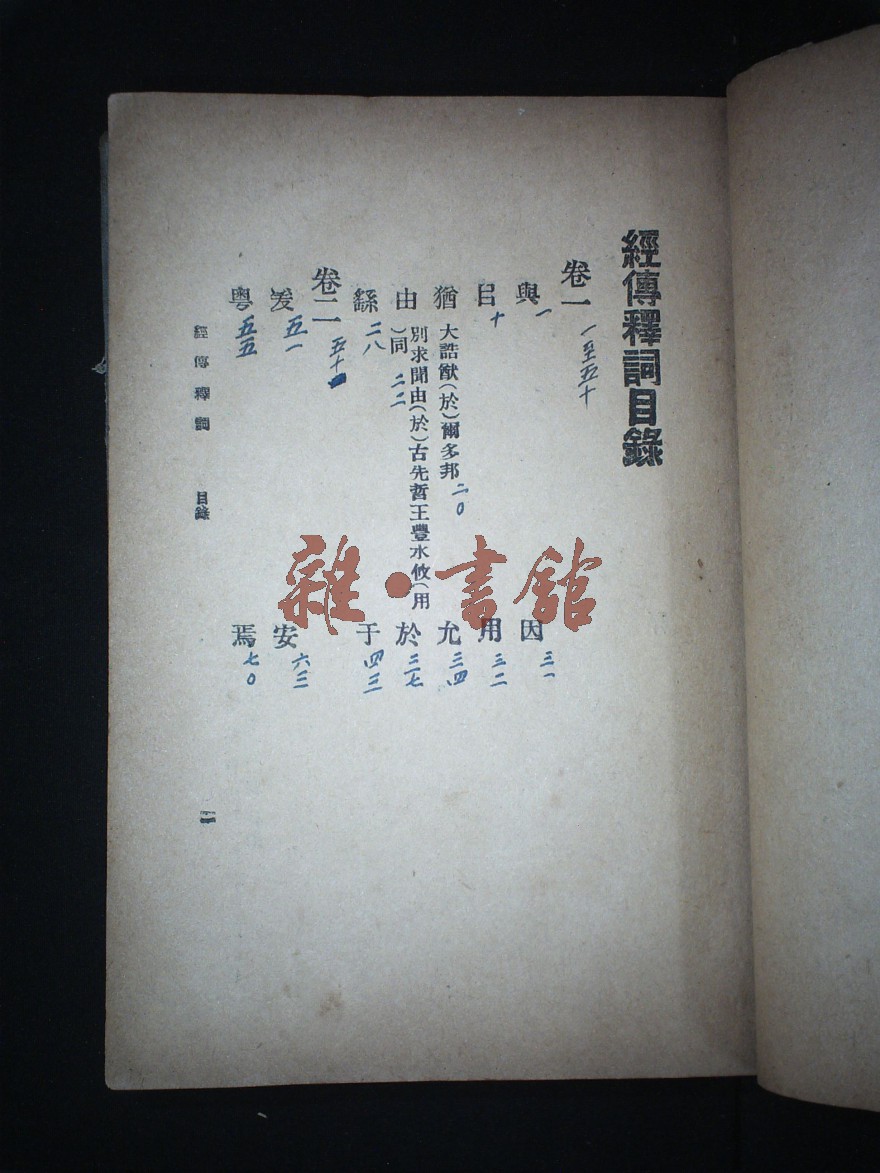 經傳釋詞目錄
卷一 一至五十
與 一 因 三一
㠯 十 用 三二
猶 大誥猷(於)爾多邦 二〇 允 三四
由 別求聞由(於)古先哲王豐水攸(用
)同 二二 於 三七
繇 二八 于 四三
卷二 五十
爰 五一 安 六三
粵 五五 焉 七〇
經傳釋詞 目錄
雜·書館